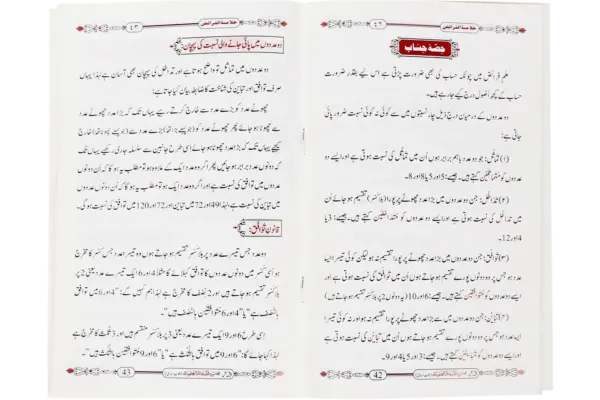 ٤٢
خلاصۃ الفرائض
حصّۂ حساب
علم فرائض میں چونکہ حساب کی بھی ضرورت پڑتی ہے اس لیے بقدر ضرورت
حساب کے کچھ اصول درج کیے جا رہے ہیں۔
دو عددوں کے درمیان درج ذیل چار نسبتوں میں سے کوئی نہ کوئی نسبت ضرور پائی
جاتی ہے:
(۱) تماثُل: جو دو عدد باہم برابر ہوں اُن میں تماثل کی نسبت ہوتی ہے اور ایسے دو
عددوں کو متماثلین کہتے ہیں۔ جیسے: 5 اور 5 یا 8 اور 8۔
(۲) تداخُل: جن دو عددوں میں سے بڑا عدد چھوٹے پر پورا تقسیم ہو جائے اُن
میں تداخل کی نسبت ہوتی ہے اور ایسے دو عددوں کو متداخلین کہتے ہیں۔ جیسے: 5 یا
4 اور 12۔
(۳) توافُق: جن دو عددوں میں بڑا عدد چھوٹے پر پورا تقسیم نہ ہو لیکن کوئی تیسرا ایسا
عدد ہو جس پر وہ دونوں پورے تقسیم ہو جائیں اُن میں توافق کی نسبت ہوتی ہے اور
ایسے دو عددوں کو متوافقین کہتے ہیں۔ جیسے: 6 اور 10 (یہ دونوں 2 پر پورا تقسیم ہو جاتے ہیں)
(۴) تبایُن: جن دو عددوں میں سے بڑا عدد چھوٹے پر پورا تقسیم نہ ہو اور نہ کوئی تیسرا
ایسا عدد ہو جس پر وہ دونوں پورے تقسیم ہو جائیں اُن میں تباین کی نسبت ہوتی ہے اور ایسے دو
عددوں کو متباینین کہتے ہیں۔ جیسے: 3 اور 5 یا 4 اور 9۔
42
خلاصۃ الفرائض
٤٣
دو عددوں میں پائی جانے والی نسبت کی پہچان:
دو عددوں میں تماثل تو واضح ہوتا ہے اور تداخل کی پہچان بھی آسان ہے لہٰذا یہاں
صرف توافق اور تباین کی شناخت کا ضابطہ بیان کیا جاتا ہے:
چھوٹے عدد کو بڑے عدد سے خارج کرتے رہیے یہاں تک کہ بڑا عدد چھوٹے عدد
سے چھوٹا ہو جائے پھر چھوٹے عدد کو (جو پہلے بڑا تھا) بڑے عدد سے (جو پہلے چھوٹا تھا) خارج
کیجیے یہاں تک کہ بڑا عدد چھوٹا ہو جائے اسی طرح جانبین سے سلسلہ جاری رکھیے یہاں تک
کہ دونوں عدد برابر ہو جائیں پھر اگر وہ عدد ایک کے علاوہ ہو تو مطلب یہ ہو گا کہ اُن دونوں
عددوں میں توافق کی نسبت ہے اور اگر وہ عدد ایک ہو تو مطلب یہ ہو گا کہ اُن دونوں عددوں
میں تباین کی نسبت ہے لہٰذا 49 اور 72 میں تباین اور 72 اور 120 میں توافق کی نسبت ہو گی۔
قانونِ توافق:
دو عدد جس تیسرے عدد پر بلا کسر تقسیم ہو جاتے ہوں وہ تیسرا عدد جس کسر کا مخرج
ہو اسی کسر میں دونوں عددوں کا توافق کہلائے گا مثلا 4 اور 6 ایک تیسرے عدد یعنی 2 پر
بلا کسر تقسیم ہو جاتے ہیں اور 2 نصف کا مخرج ہے لہٰذا ہم کہیں گے: "4 اور 6 میں توافق
بالنصف ہے" یا "4 اور 6 متوافقین بالنصف ہیں"۔
اسی طرح 6 اور 9 ایک تیسرے عدد یعنی 3 پر بلا کسر منقسم ہیں اور 3 ثلث کا مخرج ہے
لہٰذا کہا جائے گا: "6 اور 9 میں توافق بالثلث ہے" یا "6 اور 9 متوافقین بالثلث ہیں"۔
43